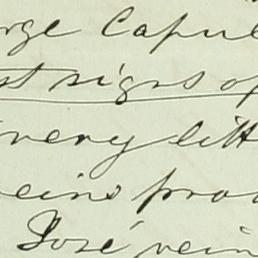 rge Capul
st signs of
very litt
eins pro
José vein